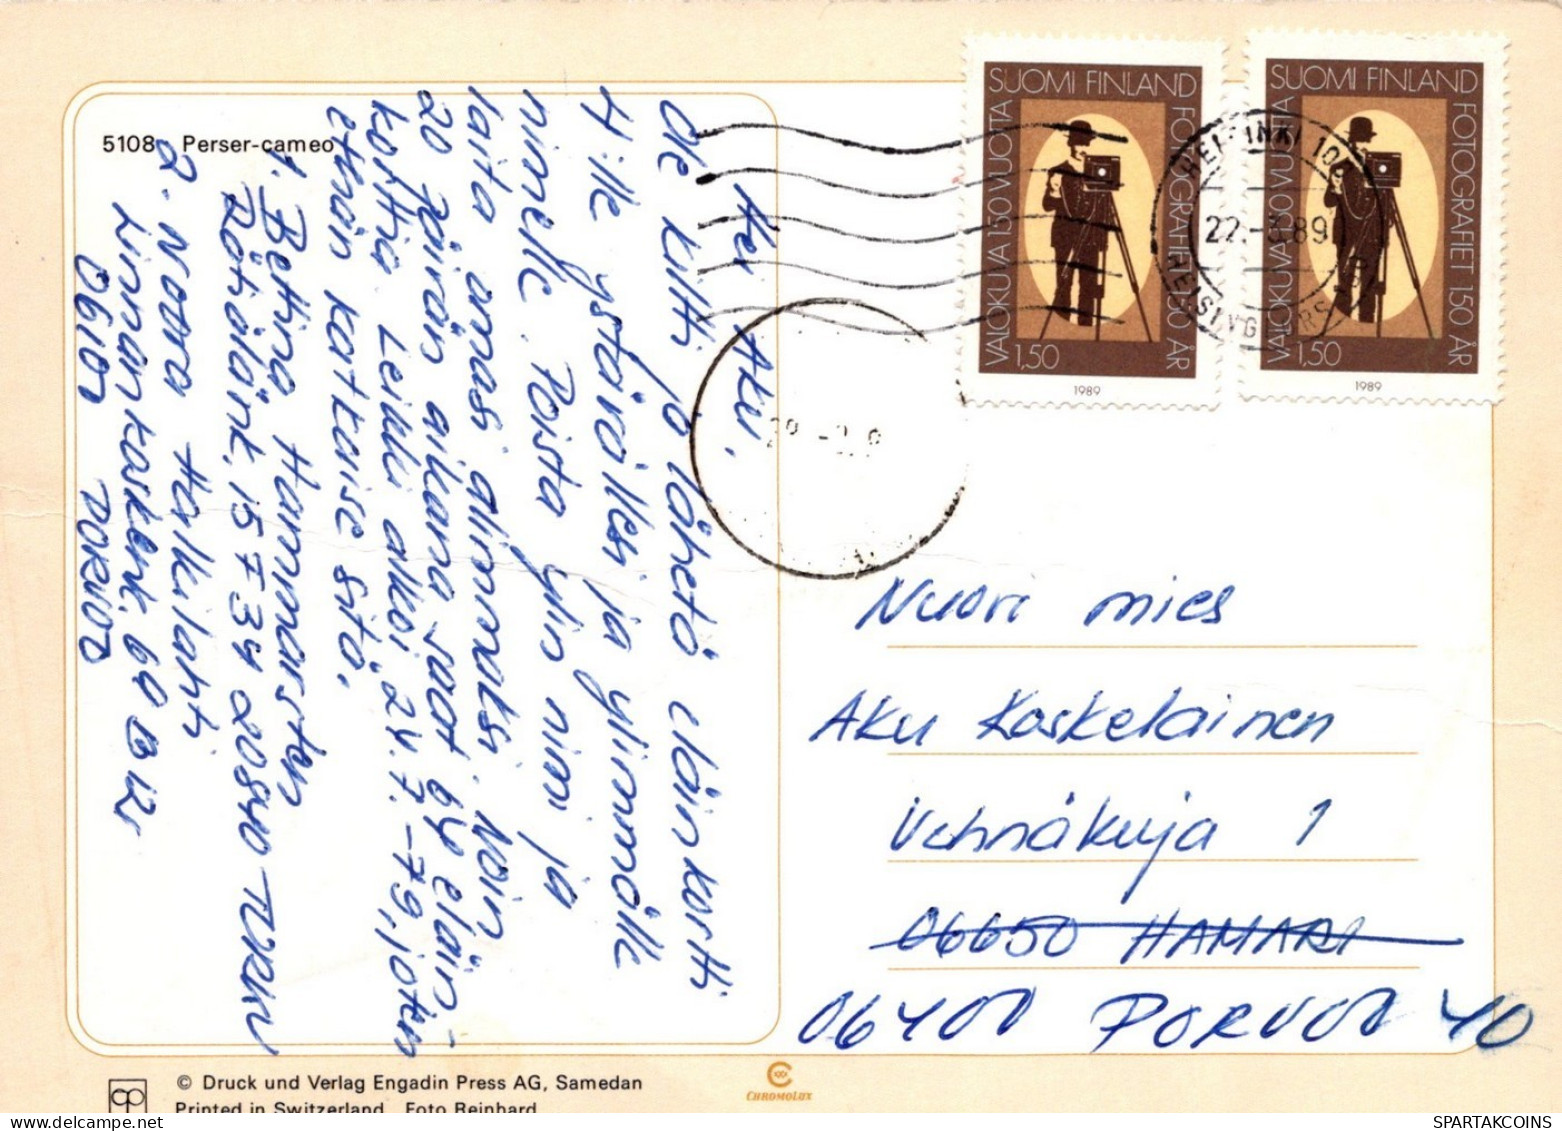 5108 Perser-cameo
Hei Aku,
ole kiltti ja lähetä eläinkortti
4:lle ystävällesi ja ylimmälle
nimelle. Poista ylin nimi ja
laita omasi alimmaksi. Noin
20 päivän aikana saat 64 eläin-
korttia. Leikki alkoi 24.7.-79, joten
ethän katkaise sitä.
1. Bettina Hammarsten
15 F 34 20840 TURKU
2. Noora Halkilahti
Linnankoskenk. 69 B 12
06100 PORVOO
SUOMI FINLAND
VALOKUVA 150 VUOTTA
FOTOGRAFIET 150 ÅR
1,50
1989
SUOMI FINLAND
VALOKUVA 150 VUOTTA
FOTOGRAFIET 150 ÅR
1,50
1989
HELSINKI 10
22.-3.89
HELSINGFORS
Nuori mies
Aku Koskelainen
Vehnäkuja 1
06650 HAMARI
06400 PORVOO 40
© Druck und Verlag Engadin Press AG, Samedan
Printed in Switzerland Foto Reinhard
CHROMOLUX
SPARTAKCOINS